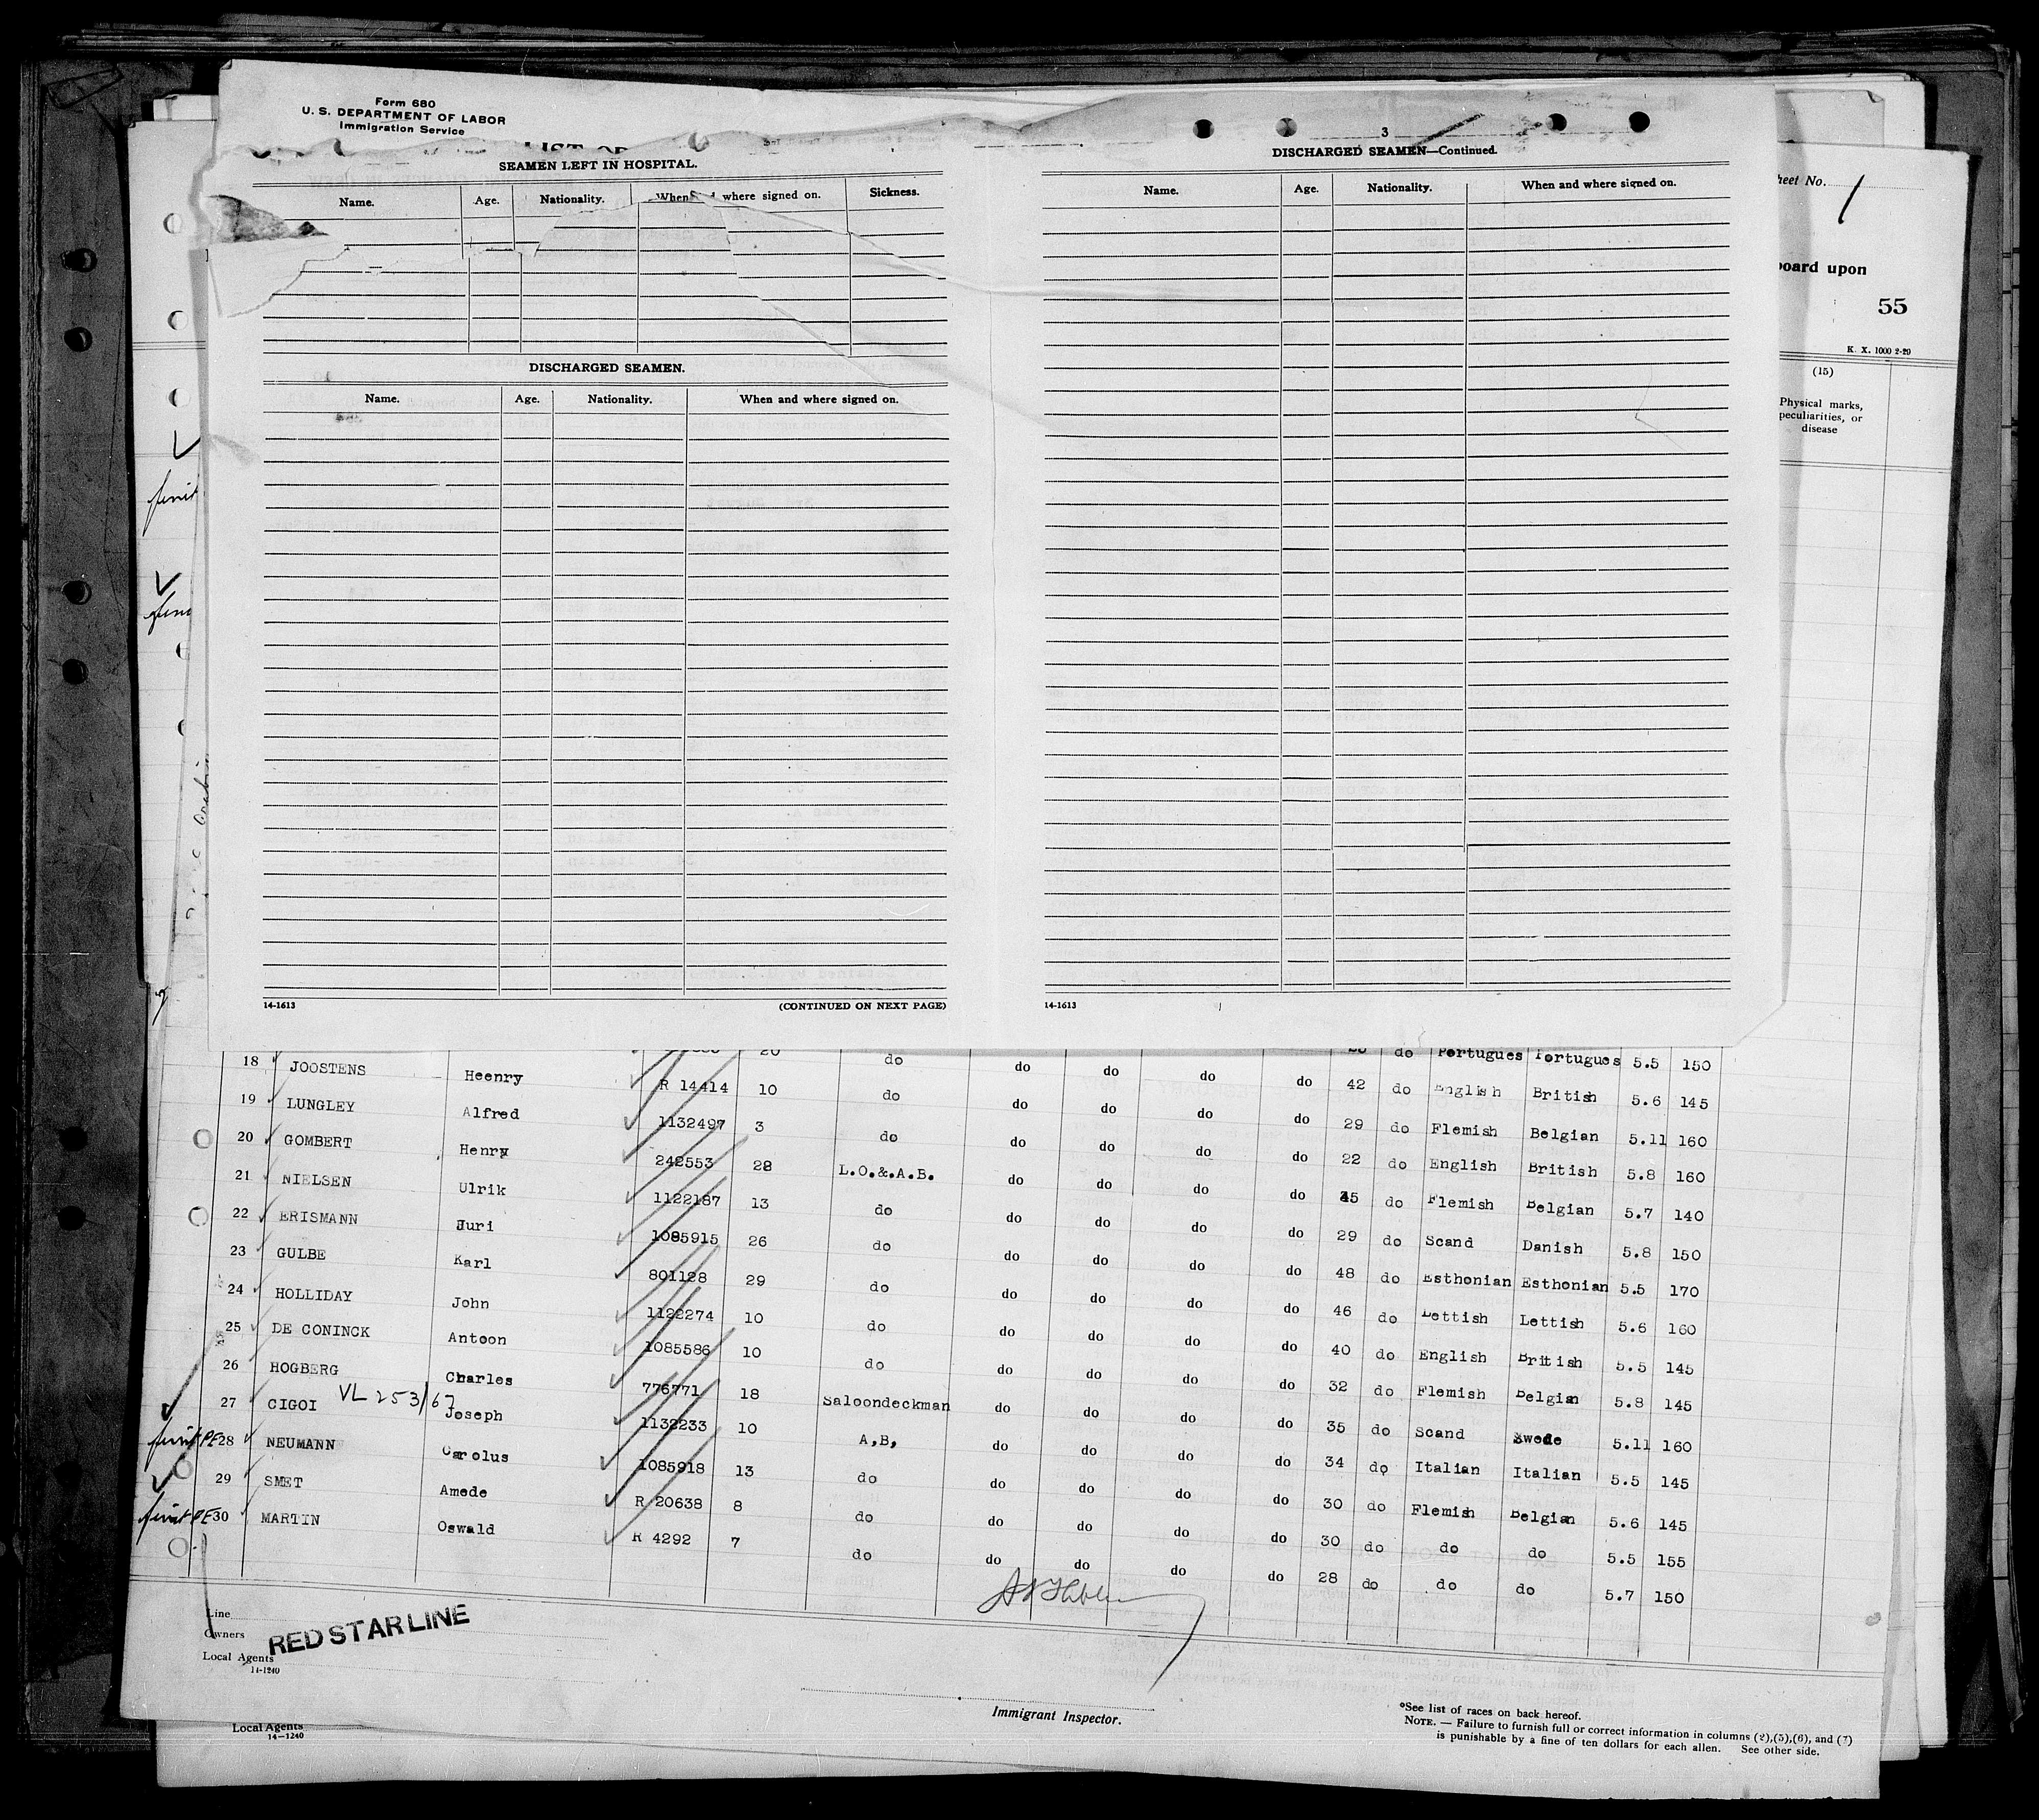 Form 680
U. S. DEPARTMENT OF LABOR
Immigration Service
LIST OF
SEAMEN LEFT IN HOSPITAL.
Name. Age. Nationality. When and where signed on. Sickness.
DISCHARGED SEAMEN.
Name. Age. Nationality. When and where signed on.
14-1613
(CONTINUED ON NEXT PAGE)
3
DISCHARGED SEAMEN—Continued.
Name. Age. Nationality. When and where signed on.
14-1613
heet No. 1
board upon
55
K. X. 1000 2-29
(15)
Physical marks,
peculiarities, or
disease
do Portugues Portugues 5.5 150
20 do do do do do 42 do English British 5.6 145
18 JOOSTENS Heenry R 14414 10 do do do do do 29 do Flemish Belgian 5.11 160
19 LUNGLEY Alfred 1132497 3 do do do do do 22 do English British 5.8 160
20 GOMBERT Henry 242553 28 L.O.&.A.B. do do do do 45 do Flemish Belgian 5.7 140
21 NIELSEN Ulrik 1122187 13 do do do do do 29 do Scand Danish 5.8 150
22 ERISMANN Juri 1085915 26 do do do do do 48 do Esthonian Esthonian 5.5 170
23 GULBE Karl 801128 29 do do do do do 46 do Lettish Lettish 5.6 160
24 HOLLIDAY John 1122274 10 do do do do do 40 do English British 5.5 145
25 DE CONINCK Antoon 1085586 10 do do do do do 32 do Flemish Belgian 5.8 145
26 HOGBERG Charles 776771 18 Saloondeckman do do do do 35 do Scand Swede 5.11 160
27 CIGOI VL 253/67 Joseph 1132233 10 A,B, do do do do 34 do Italian Italian 5.5 145
28 NEUMANN Carolus 1085918 13 do do do do do 30 do Flemish Belgian 5.6 145
29 SMET Amede R 20638 8 do do do do do 30 do do do 5.5 155
30 MARTIN Oswald R 4292 7 do do do do do 28 do do do 5.7 150
Line
Owners
RED STAR LINE
Local Agents
14-1240
Immigrant Inspector.
*See list of races on back hereof.
NOTE. — Failure to furnish full or correct information in columns (2),(5),(6), and (7)
is punishable by a fine of ten dollars for each alien. See other side.
Local Agents
14—1240